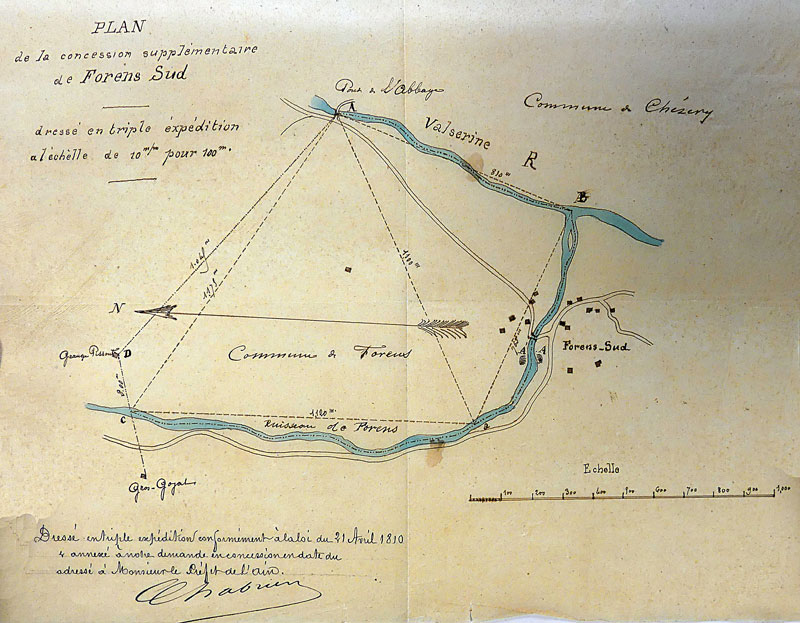 PLAN
de la concession supplémentaire
de Forens Sud
dressé en triple expédition
à l'échelle de 10 m/m pour 100m.
Pont de l'Abbaye
A
Commune de Chézery
Valserine R
810m
B
1100m
N
D
C
Commune de Forens
1120m
Ruisseau de Forens
A A
Forens-Sud
Gros-Gojat
Echelle
100 200 300 400 600 700 800 900 1,000
Dressé en triple expédition conformément à la loi du 21 Avril 1810
& annexé à notre demande en concession en date du
adressé à Monsieur le Préfet de l'Ain.